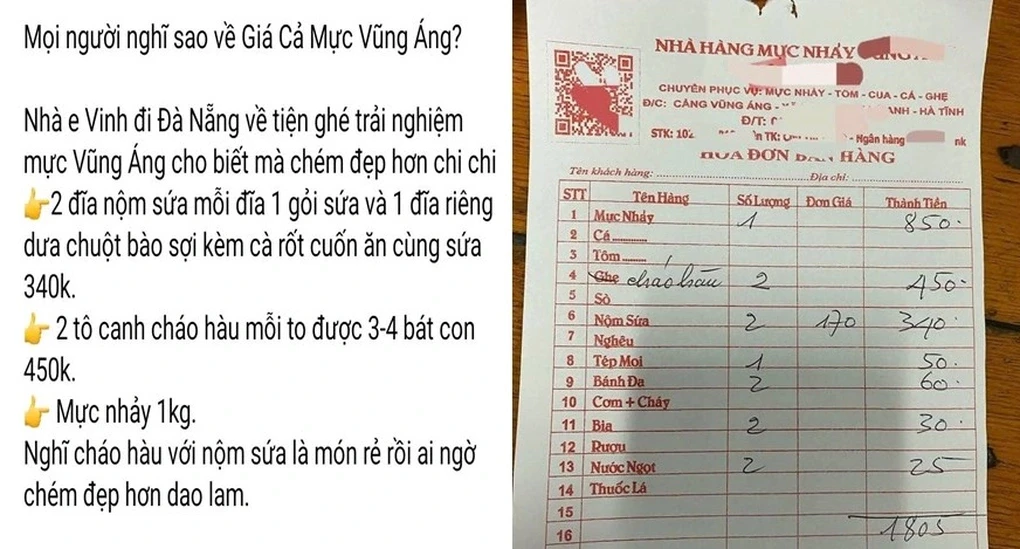 Mọi người nghĩ sao về Giá Cả Mực Vũng Áng?
Nhà e Vinh đi Đà Nẵng về tiện ghé trải nghiệm
mực Vũng Áng cho biết mà chém đẹp hơn chi chi
👉2 đĩa nộm sứa mỗi đĩa 1 gỏi sứa và 1 đĩa riêng
dưa chuột bào sợi kèm cà rốt cuốn ăn cùng sứa
340k.
👉 2 tô canh cháo hàu mỗi to được 3-4 bát con
450k.
👉 Mực nhảy 1kg.
Nghĩ cháo hàu với nộm sứa là món rẻ rồi ai ngờ
chém đẹp hơn dao lam.
NHÀ HÀNG MỰC NHẢY
CHUYÊN PHỤC VỤ: MỰC NHẢY - TÔM - CUA - CÁ - GHẸ
Đ/C: CẢNG VŨNG ÁNG - ANH - HÀ TĨNH
Đ/T:
STK: 102 TK: - Ngân hàng nk
HÓA ĐƠN BÁN HÀNG
Tên khách hàng: Địa chỉ:
STT Tên Hàng Số Lượng Đơn Giá Thành Tiền
1 Mực Nháy 1 850.
2 Cá
3 Tôm
4 Ghẹ cháo hàu 2 450.
5 Sò
6 Nộm Sứa 2 170 340.
7 Nghêu
8 Tép Moi 1 50.
9 Bánh Đa 2 60.
10 Cơm + Cháy
11 Bia 2 30.
12 Rượu
13 Nước Ngọt 2 25
14 Thuốc Lá
15
16 1805